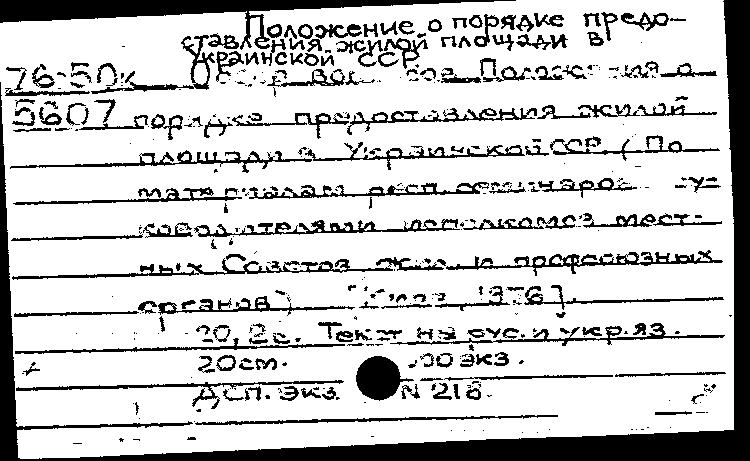 Положение о порядке предо-
ставления жилой площади в
Украинской ССР
76-50к Положения о
5607 порядке предоставления жилой
площади в Украинской ССР. (По
материалам респ. семинаров ру-
ководителями исполкомов мест-
ных Советов жил. и профсоюзных
органов) [Киев, 1976].
20, 2 с. Текст на рус. и укр. яз.
20 см. 00 экз.
ДСП. Экз. N 218.